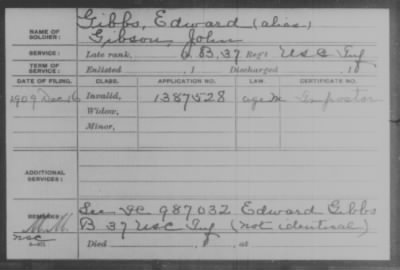 NAME OF SOLDIER: Gibbs, Edward (alias)
Gibson, John
SERVICE: Late rank, B, 37 Reg't U S C Inf
TERM OF SERVICE: Enlisted , 1 Discharged , 1
DATE OF FILING. CLASS. APPLICATION NO. LAW CERTIFICATE NO.
1909 Dec 16 Invalid, 1387528 age M Impostor
Widow,
Minor,
ADDITIONAL SERVICES:
REMARKS: See IC 987.032 Edward Gibbs
B 37 USC Inf (not identical)
Died , 1 , at